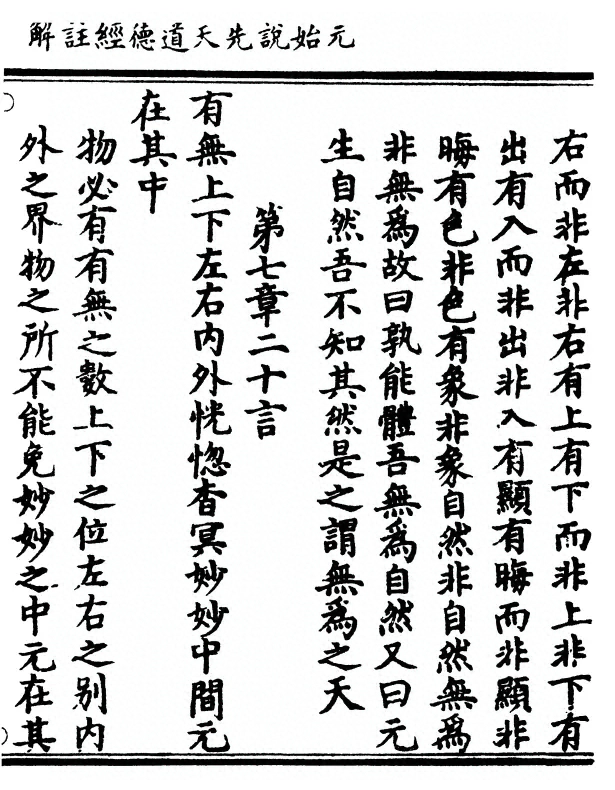 元始說先天道德經註解
右而非左非右有上有下而非上非下有
出有入而非出非入有顯有晦而非顯非
晦有色非色有象非象自然非自然無爲
非無爲故曰孰能體吾無爲自然又曰元
生自然吾不知其然是之謂無爲之天
第七章二十言
有無上下左右內外恍惚杳冥妙妙中間元
在其中
物必有有無之數上下之位左右之别內
外之界物之所不能免妙妙之中元在其